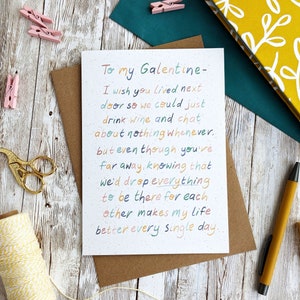 To my Galentine-
I wish you lived next
door so we could just
drink wine and chat
about nothing whenever.
but even though you're
far away, knowing that
we'd drop everything
to be there for each
other makes my life
better every single day.